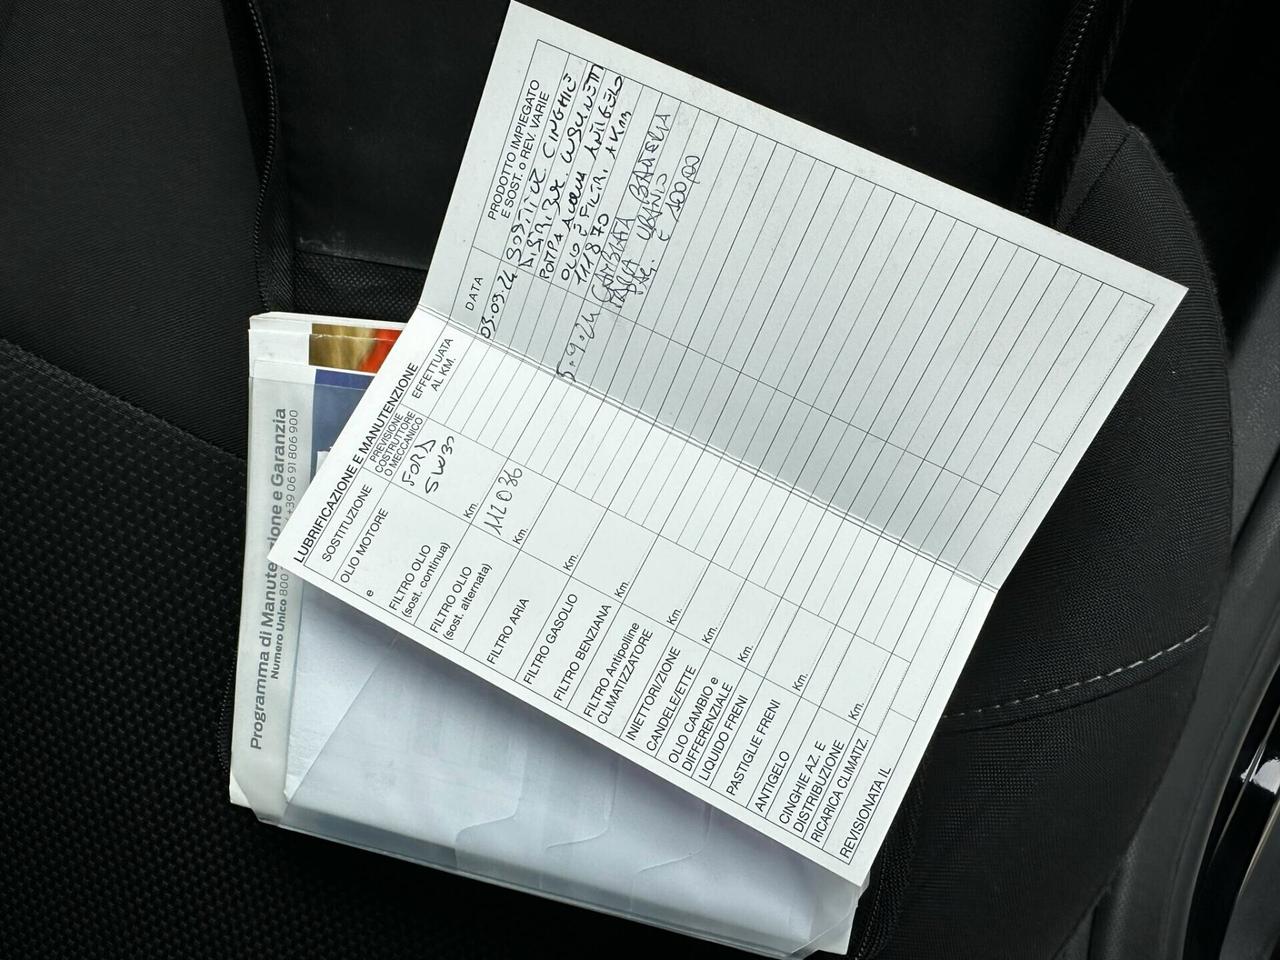 PRODOTTO IMPIEGATO
E SOST. o REV. VARIE
DATA
03.09.24 SOSTITUZ CINGHIE
DISTRIBUZ.
POMPA ACQUA
OLIO E FILTRI ANTIGELO
111870 A KM
5-9-24 CAMBIATA BATTERIA
PAG. € 100,00
LUBRIFICAZIONE E MANUTENZIONE
SOSTITUZIONE
PREVISIONE
COSTRUTTORE
O MECCANICO
EFFETTUATA
AL KM.
OLIO MOTORE
FORD
5W30
e
FILTRO OLIO
(sost. continua)
Km.
FILTRO OLIO
(sost. alternata)
112036
Km.
FILTRO ARIA
FILTRO GASOLIO
Km.
FILTRO BENZIANA
Km.
FILTRO Antipolline
CLIMATIZZATORE
INIETTORI/ZIONE
Km.
CANDELE/ETTE
Km.
OLIO CAMBIO e
DIFFERENZIALE
LIQUIDO FRENI
Km.
PASTIGLIE FRENI
ANTIGELO
Km.
CINGHIE AZ. E
DISTRIBUZIONE
RICARICA CLIMATIZ.
Km.
REVISIONATA IL
Programma di Manutenzione e Garanzia
Numero Unico 800
+39 06 91 806 900